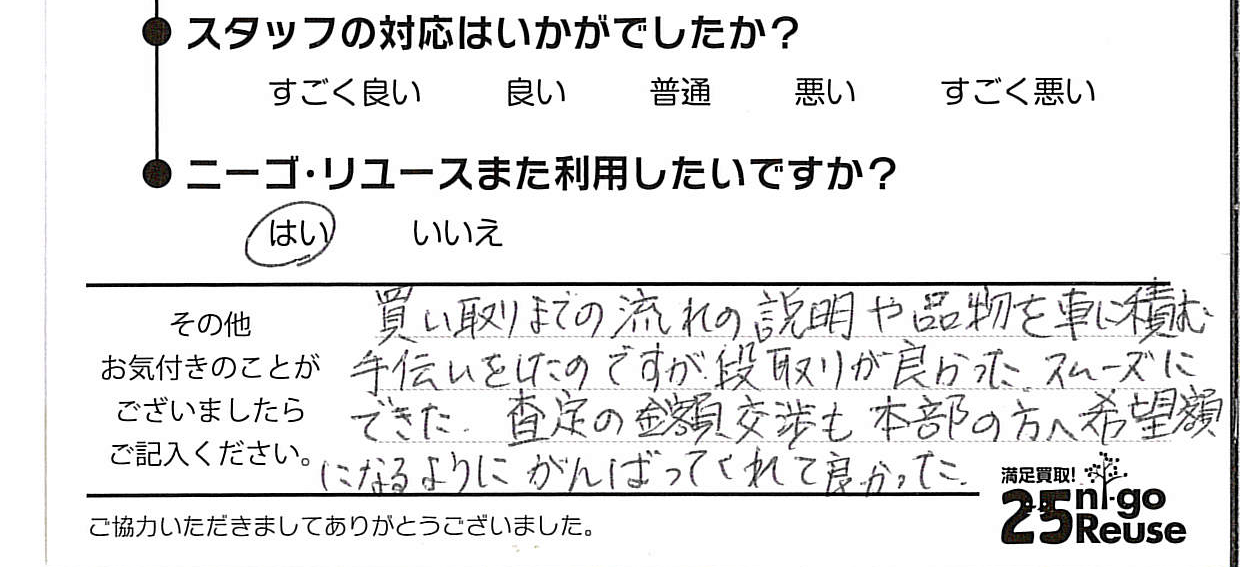 スタッフの対応はいかがでしたか？
すごく良い 良い 普通 悪い すごく悪い
ニーゴ・リユースまた利用したいですか？
はい いいえ
その他
お気付きのことが
ございましたら
ご記入ください。
買い取りまでの流れの説明や品物を車に積む
手伝いをしたのですが段取りが良かった スムーズに
できた. 査定の金額交渉も本部の方へ希望額
になるようにがんばってくれて良かった.
満足買取!
25 ni-go
Reuse
ご協力いただきましてありがとうございました。